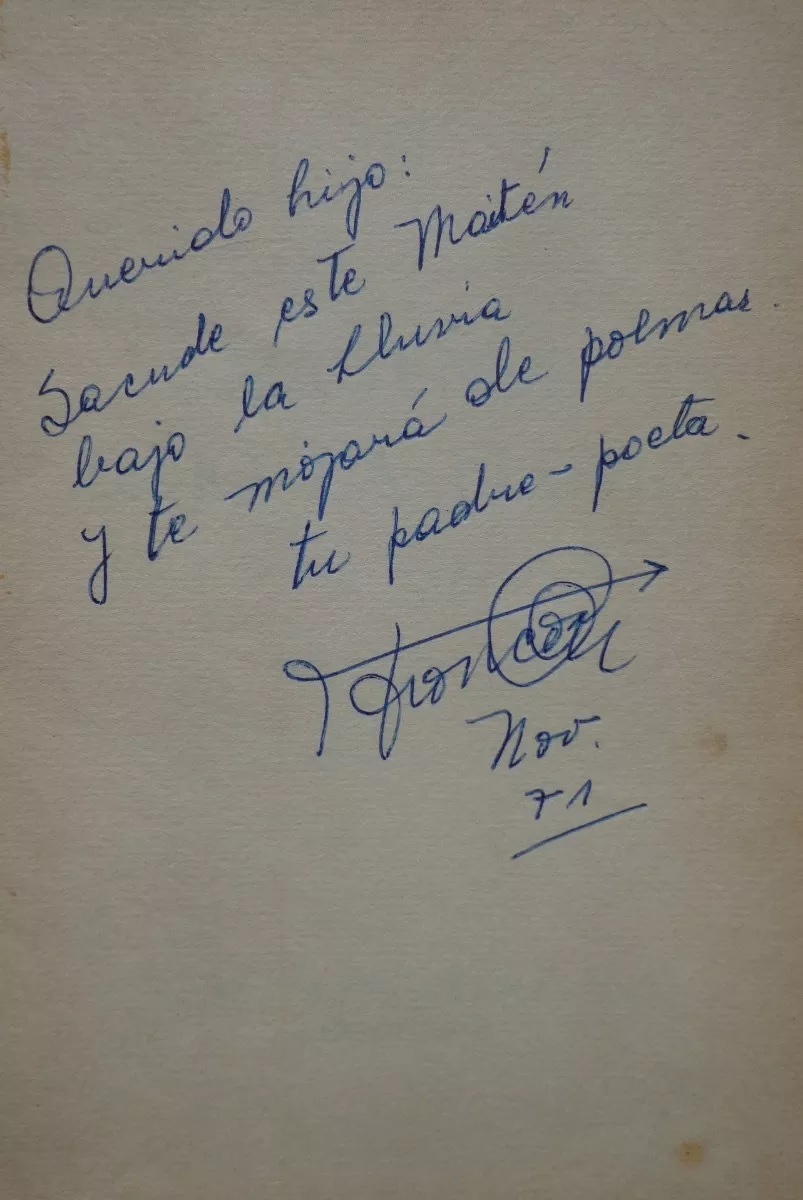 Querido hijo:
Sacude este Maitén
bajo la lluvia
y te mojará de poemas.
tu padre-poeta.
Nov.
71